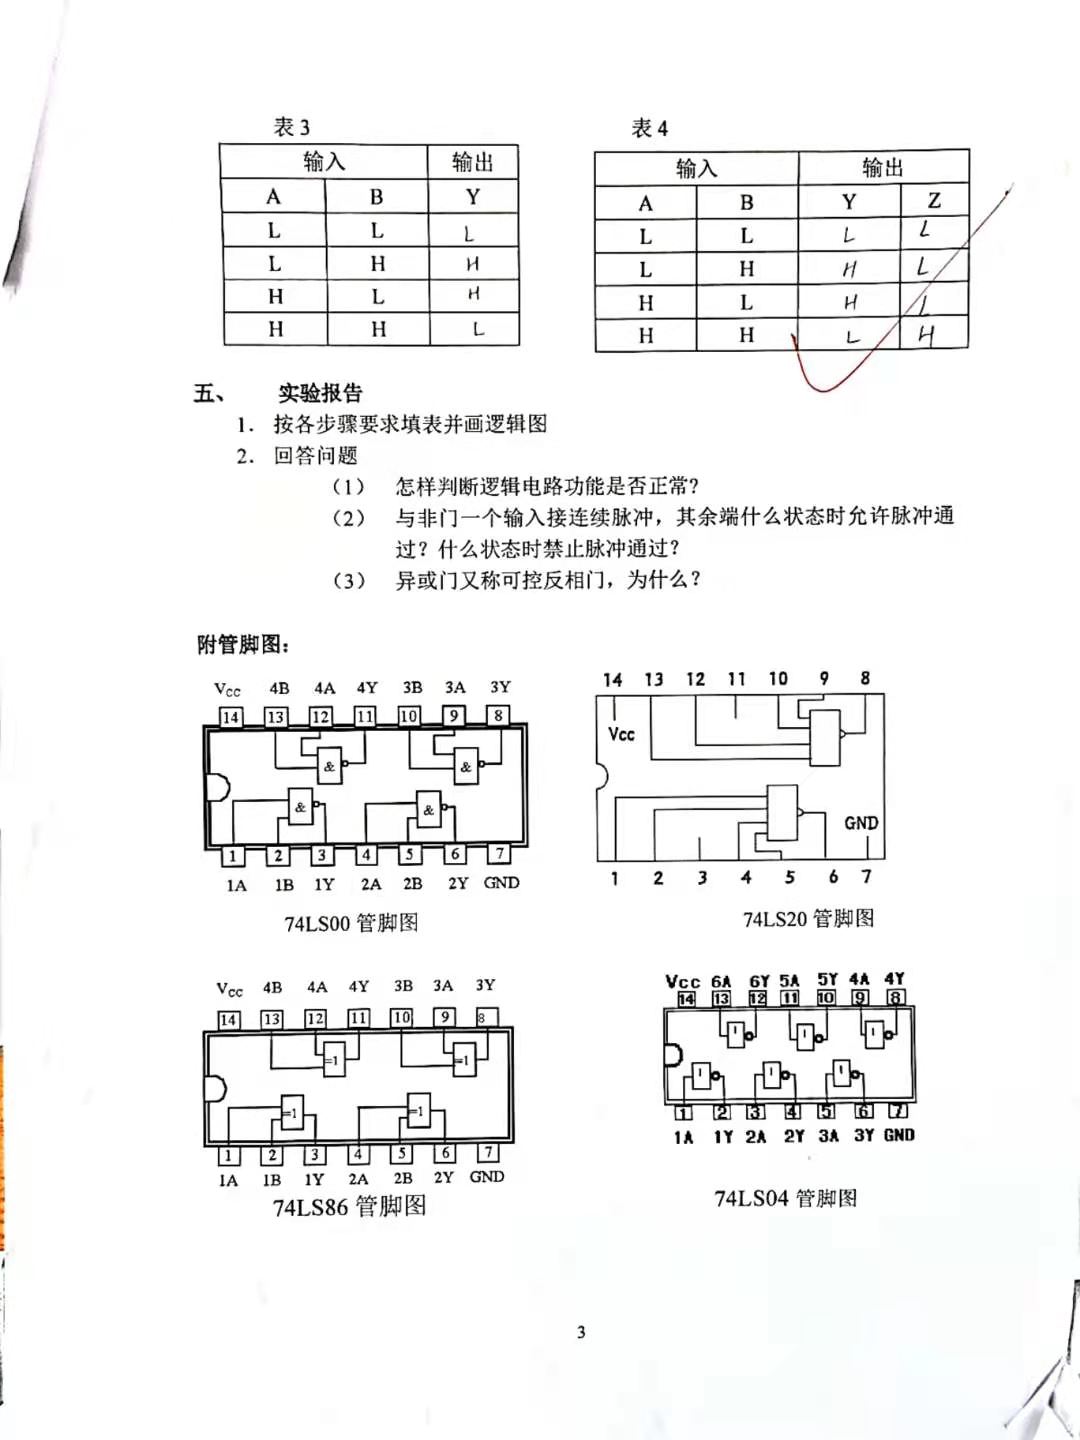 表 3 表 4
输入 输出
A B Y
L L L
L H H
H L H
H H L
输入 输出
A B Y Z
L L L L
L H H L
H L H L
H H L H
五、 实验报告
1. 按各步骤要求填表并画逻辑图
2. 回答问题
（1） 怎样判断逻辑电路功能是否正常?
（2） 与非门一个输入接连续脉冲，其余端什么状态时允许脉冲通
过？什么状态时禁止脉冲通过？
（3） 异或门又称可控反相门，为什么？
附管脚图：
Vcc 4B 4A 4Y 3B 3A 3Y
14 13 12 11 10 9 8
& &
& &
1 2 3 4 5 6 7
1A 1B 1Y 2A 2B 2Y GND
74LS00 管脚图
14 13 12 11 10 9 8
Vcc
GND
1 2 3 4 5 6 7
74LS20 管脚图
Vcc 4B 4A 4Y 3B 3A 3Y
14 13 12 11 10 9 8
=1 =1
=1 =1
1 2 3 4 5 6 7
1A 1B 1Y 2A 2B 2Y GND
74LS86 管脚图
Vcc 6A 6Y 5A 5Y 4A 4Y
14 13 12 11 10 9 8
1 1 1
1 1 1
1 2 3 4 5 6 7
1A 1Y 2A 2Y 3A 3Y GND
74LS04 管脚图
3